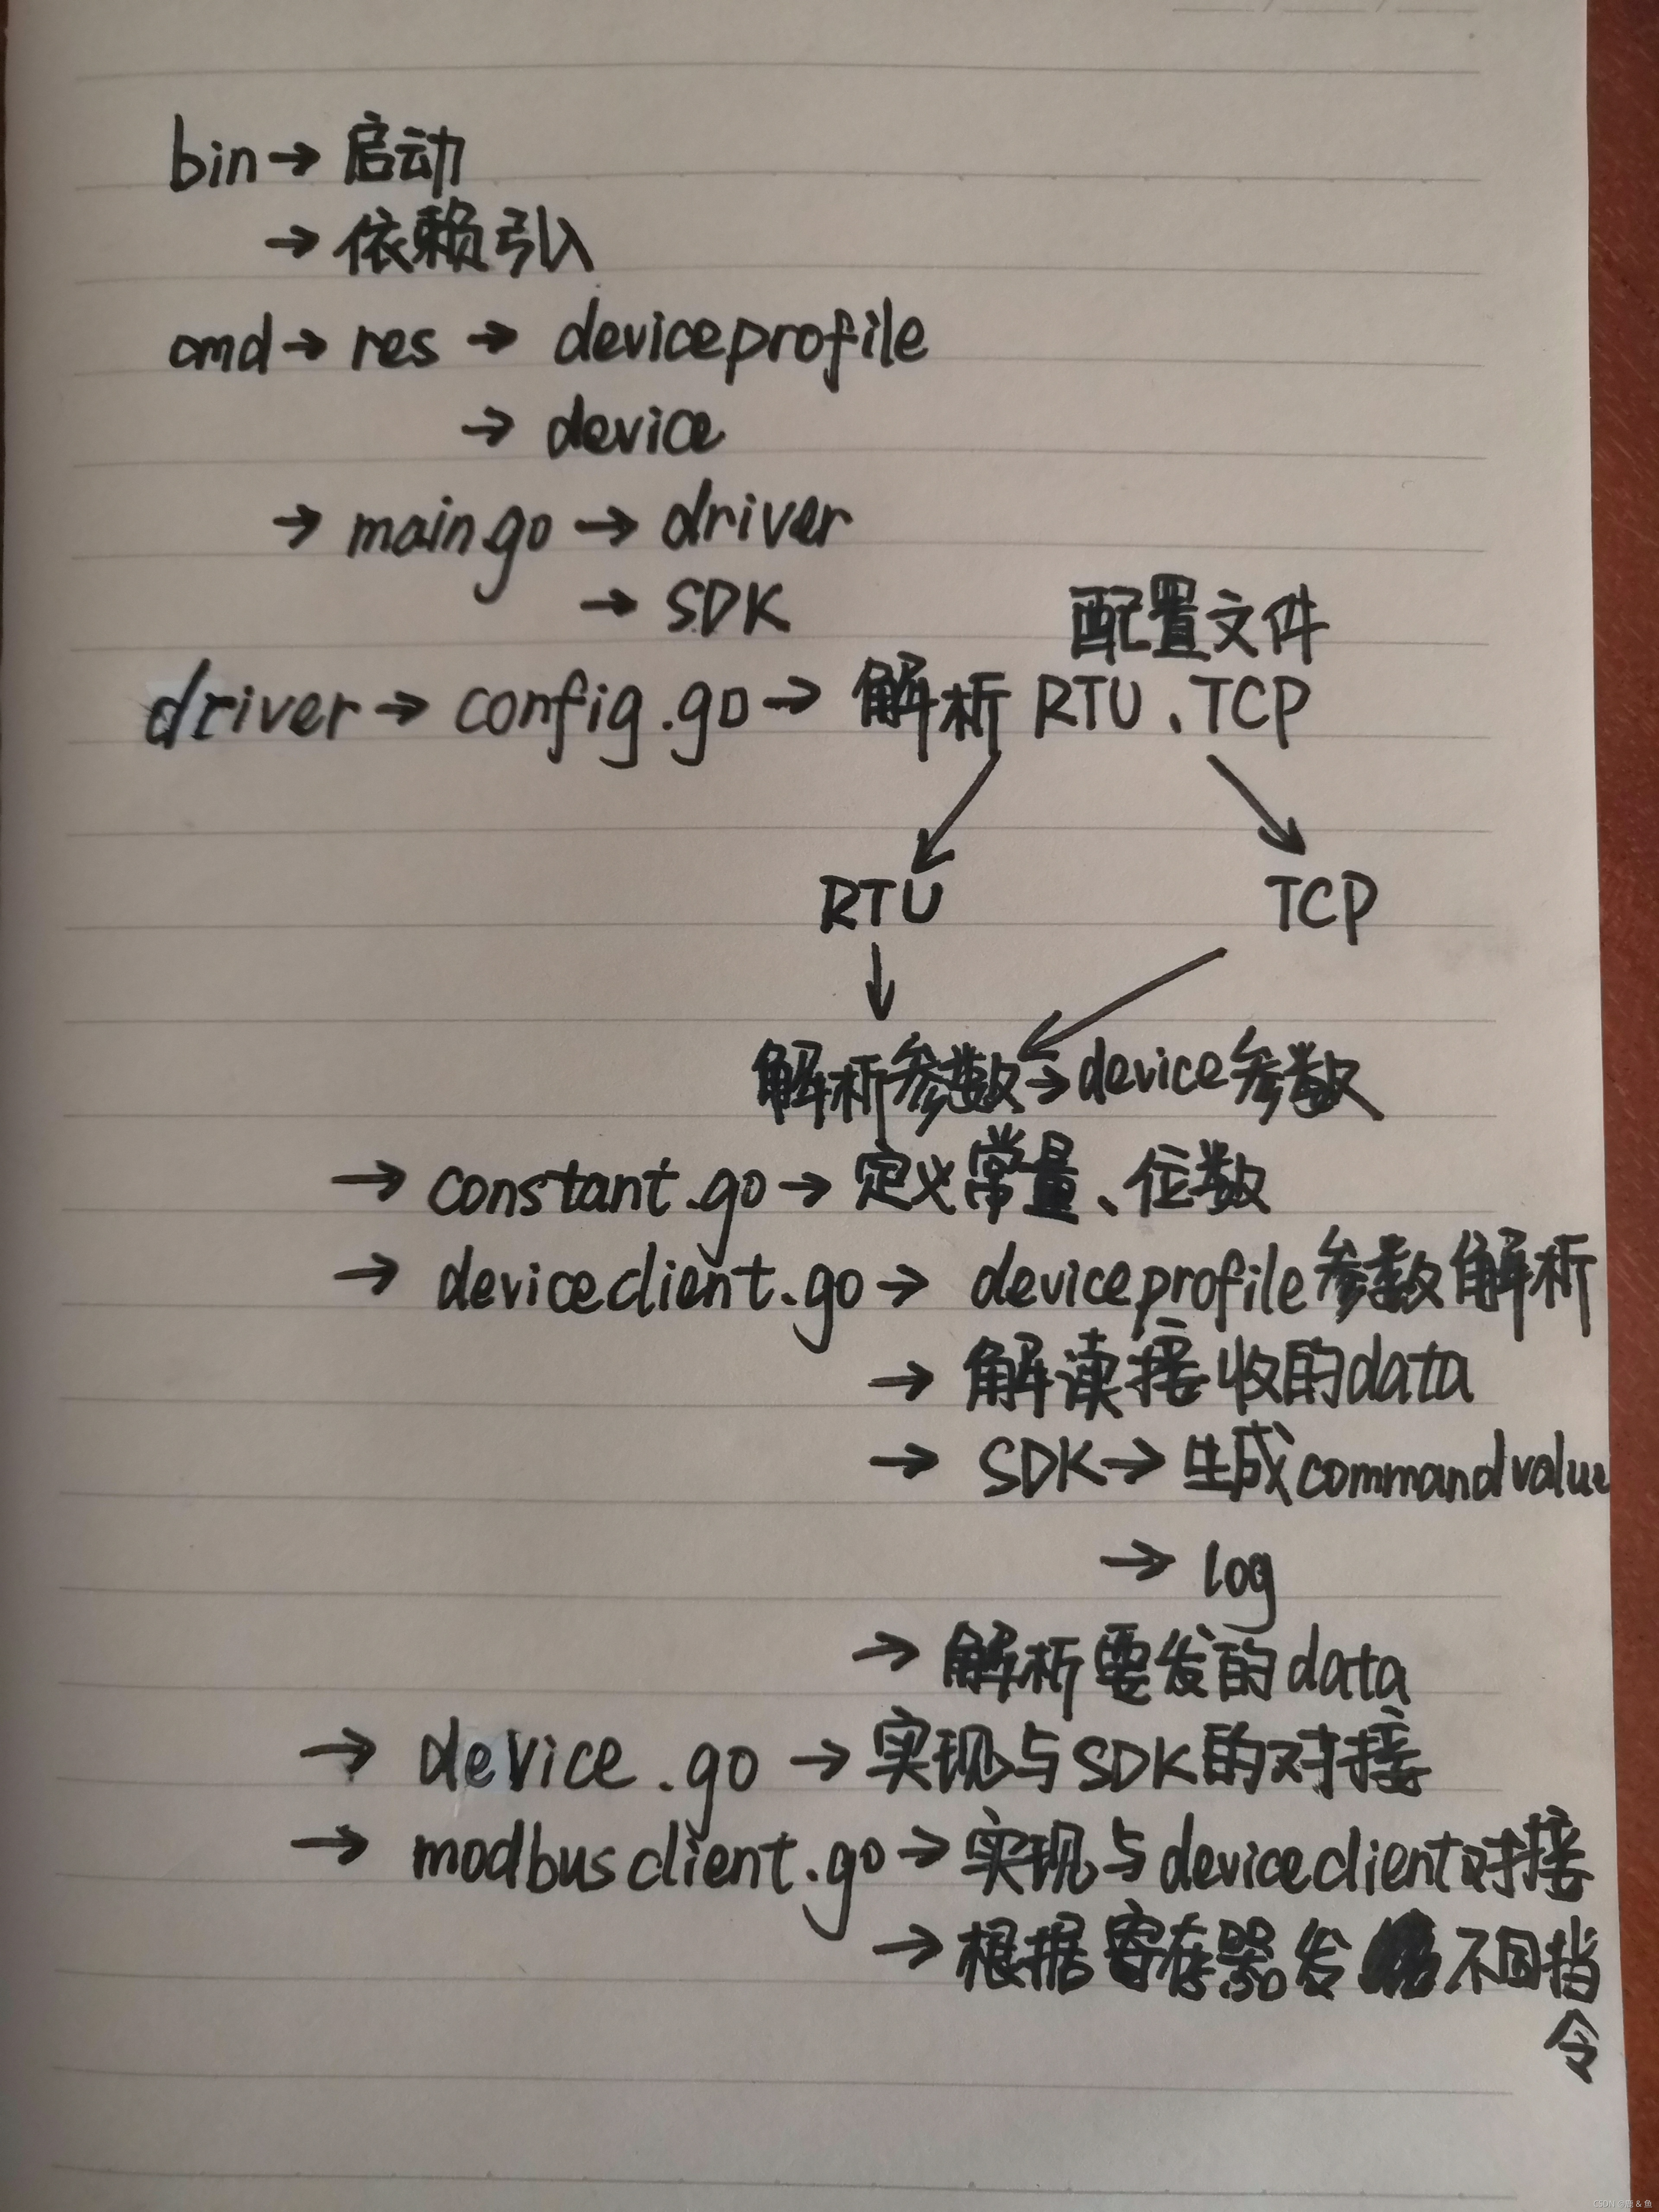 bin→启动
→依赖引入
cmd→res→deviceprofile
→device
→main.go→driver
→SDK
配置文件
driver→config.go→解析RTU、TCP
RTU TCP
解析参数→device参数
→constant.go→定义常量、位数
→deviceclient.go→deviceprofile参数解析
→解读接收的data
→SDK→生成commandvalue
→log
→解析要发的data
→device.go→实现与SDK的对接
→modbusclient.go→实现与deviceclient对接
→根据寄存器发不同指
令
CSDN @鹿&鱼